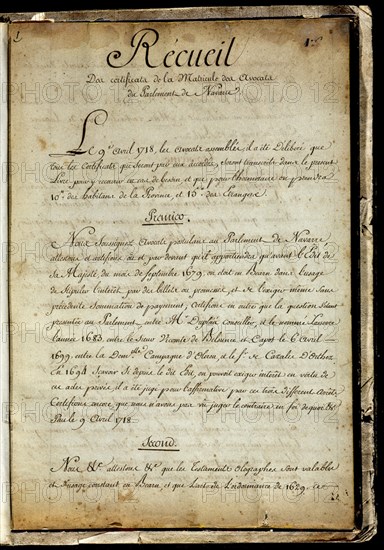 1
Recueil
Des certificats de la Matricule des Avocats
du Parlement de Navarre
Le 9e Avril 1718, les Avocats assemblés, il a été Délibéré que
tous les Certificats qui seront par eux accordés, seront transcrits dans le present
Livre, pour y recourir en cas de besoin et que pour l'honnoraire on prendra
10 des habitans de la Province, et 15 des Etrangers
Premier.
Nous Soussignez Avocats postulans au Parlement de Navarre,
attestons et certifions où et par devant qu'il appartiendra, qu'avant l'Edit de
Sa Majesté du mois de Septembre 1679, on étoit en Bearn dans l'usage
de stipuler l'intérêt, par des billets ou promesses, et de l'exiger même sans
précédente Sommation de payement, Certifions en outre que la question s'étant
presentée au Parlement, entre Mr Duplaa Conseiller, et le nommé
l'année 1683, entre le Sieur et Cayos le 6 Avril
1699, entre la Demlle Campagne d'Oleron, et le Sr de Catalis d'Orthez
En 1694 Scavoir Si depuis le dit Edit, on pouvoit exiger interêt en vertu de
ces actes privés, il a été jugé pour l'affirmative par ces trois différent Arrêts
Certifions encore, que nous n'avons pas vu juger le contraire en foi de quoi &c
Pau le 9 Avril 1718.
Second.
Nous &c attestons &c que les Testaments olographes sont valables
et d'usage constant en Bearn, et que l'article de l'ordonnance de 1629, ce